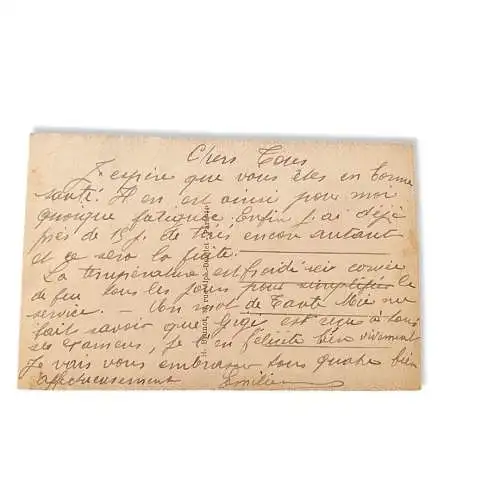 Chers Tous
J'espère que vous êtes en bonne
santé. Il en est ainsi pour moi
quoique fatigué. Enfin j'ai déjà
près de 15 j. de tiré, encore autant
et ce sera la fuite.
La température est froide ici corvée
de feu tous les jours pour simplifier le
service. - Un mot de Tante Mie me
fait savoir que Gigi est reçu à tous
ses examens, je l'en félicite bien vivement
Je vais vous embrasser tous quatre bien
affectueusement Emilien